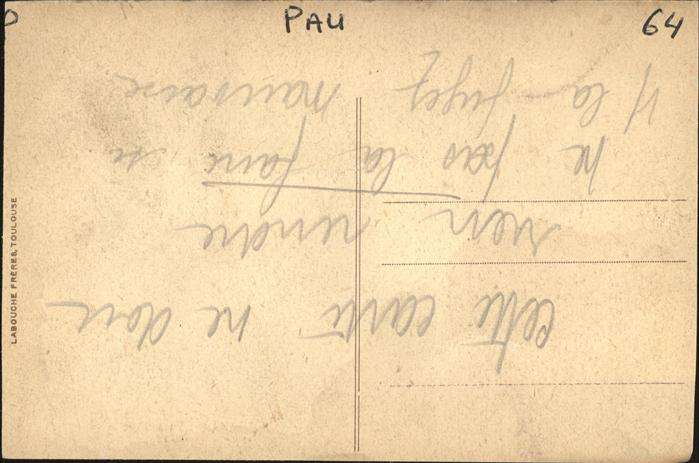 PAU
64
LABOUCHE FRÈRES, TOULOUSE
Cette carte ne doit
rien rendre
ne pas la faire si
jugez
la mauvaise